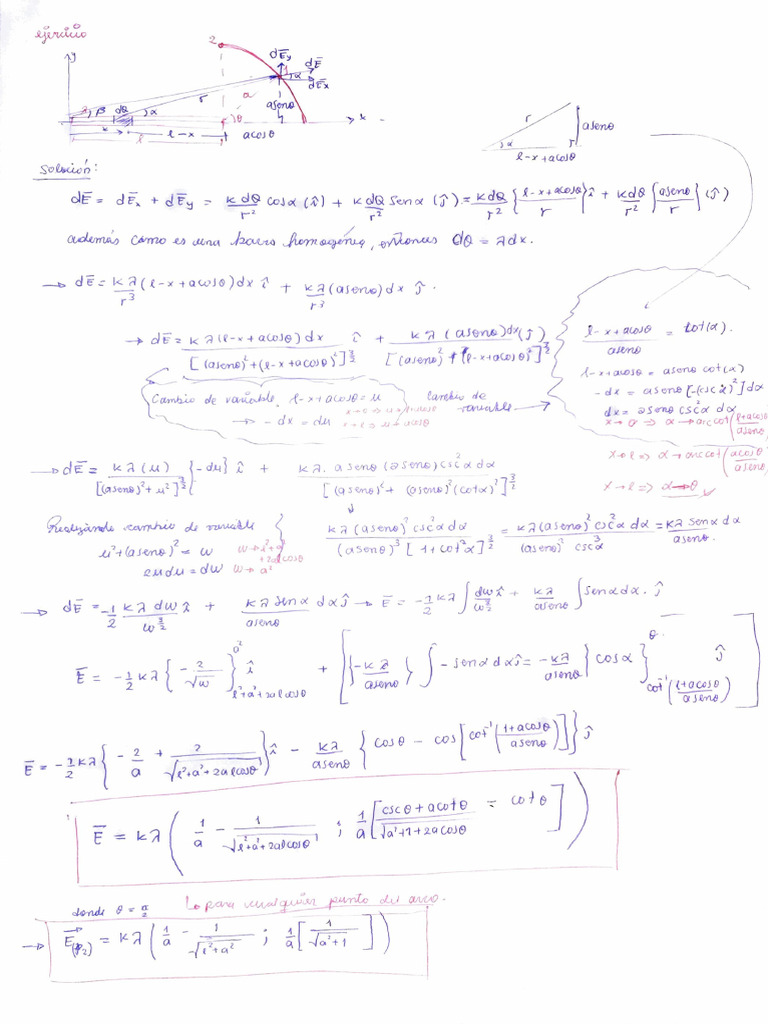 ejercicio
y
2
dE̅y
1
dE̅
α
dE̅x
a
r
a senθ
λ
β
dQ
α
θ
x
x
l-x
l
a cosθ
r
a senθ
α
l-x+a cosθ
Solución:
dE̅ = dE̅x + dE̅y = KdQ/r² cosα (î) + KdQ/r² Senα (ĵ) = KdQ/r² {l-x+acosθ/r} î + KdQ/r² {asenθ/r} (ĵ)
además como es una barra homogénea, entonces dQ = λdx.
→ dE̅ = Kλ/r³ (l-x+acosθ)dx î + Kλ/r³ (asenθ)dx ĵ.
→ dE̅ = Kλ(l-x+acosθ)dx/[(asenθ)²+(l-x+acosθ)²]^(3/2) î + Kλ(asenθ)dx/[(asenθ)²+(l-x+acosθ)²]^(3/2) (ĵ)
l-x+acosθ/asenθ = cot(α).
l-x+acosθ = asenθ cot(α)
-dx = asenθ[-(cscα)²]dα
dx = asenθ csc²α dα
x→0 ⇒ α→arccot(l+acosθ/asenθ)
x→l ⇒ α→arccot(acosθ/asenθ)
x→l ⇒ α→θ
Cambio de variable. l-x+acosθ = u
→ -dx = du
x→0 ⇒ u→l+acosθ
x→l ⇒ u→acosθ
Cambio de variable
→ dE̅ = Kλ(u)/[(asenθ)²+u²]^(3/2) {-du} î + Kλ. asenθ(asenθ)csc²α dα/[(asenθ)²+(asenθ)²(cotα)²]^(3/2)
Realizando cambio de variable
u²+(asenθ)² = w
2udu = dw
w→l²+a²+2alcosθ
w→a²
Kλ(asenθ)²csc²α dα/(asenθ)³[1+cot²α]^(3/2) = Kλ(asenθ)² csc²α dα/(asenθ)³ csc³α = Kλ senα dα/asenθ.
→ dE̅ = -1/2 Kλ dw/w^(3/2) î + Kλ senα/asenθ dα ĵ → E̅ = -1/2 Kλ ∫ dw/w^(3/2) î + Kλ/asenθ ∫ senα dα. ĵ
E̅ = -1/2 Kλ {-2/√w}_{l²+a²+2alcosθ}^{a²} î + [{-Kλ/asenθ} ∫ -senα dα ĵ = -Kλ/asenθ {cosα}_{cot⁻¹(l+acosθ/asenθ)}^{θ} ĵ]
E̅ = -1/2 Kλ {-2/a + 2/√(l²+a²+2alcosθ)} î - Kλ/asenθ {cosθ - cos[cot⁻¹(1+acosθ/asenθ)]} ĵ
E̅ = Kλ (1/a - 1/√(l²+a²+2alcosθ) ; 1/a [cscθ+acotθ/√(a²+1+2acosθ) - cotθ])
donde θ = π/2
Lo para cualquier punto del arco.
→ E⃗(P2) = Kλ (1/a - 1/√(l²+a²) ; 1/a [1/√(a²+1)])